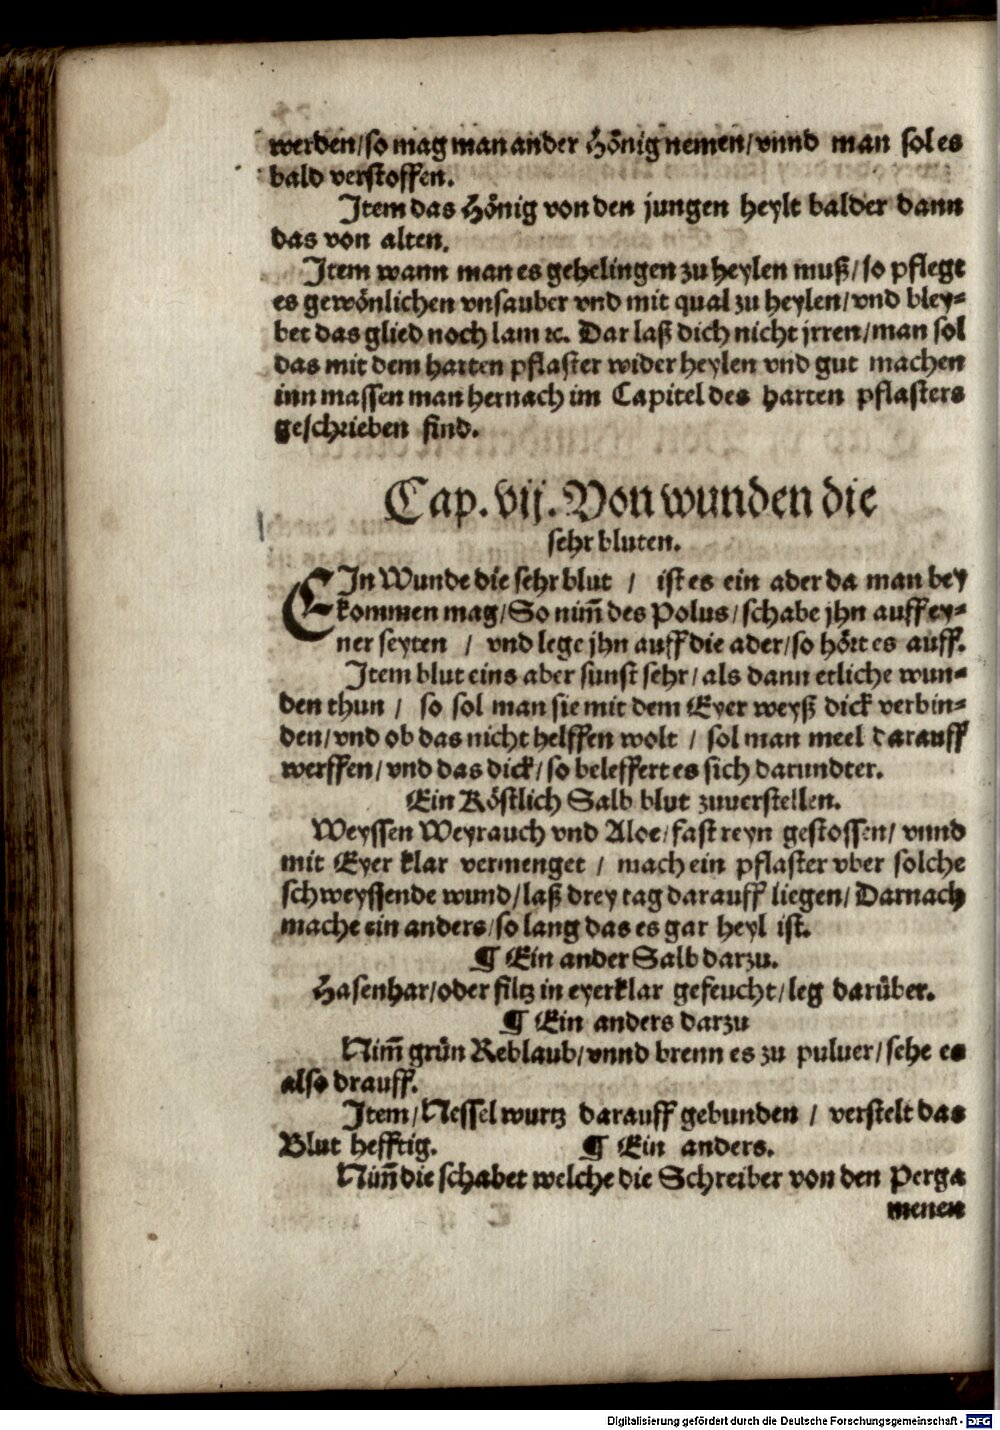 werden/so mag man ander Hönig nemen/vnnd man sol es
bald verstoffen.
Item das Hönig von den jungen heylt balder dann
das von alten.
Item wann man es gehelingen zu heylen muß/so pflegt
es gewönlichen vnsauber vnd mit qual zu heylen/vnd bley-
bet das glied noch lam ꝛc. Dar laß dich nicht jrren/man sol
das mit dem harten pflaster wider heylen vnd gut machen
inn massen man hernach im Capitel des harten pflasters
geschrieben find.
Cap. vij. Von wunden die
sehr bluten.
EIn Wunde die sehr blut / ist es ein ader da man bey
kommen mag/So nim̃ des Polus/schabe jhn auff ey-
ner seyten / vnd lege jhn auff die ader/so hört es auff.
Item blut eins aber sunst sehr/als dann etliche wun-
den thun / so sol man sie mit dem Eyer weyß dick verbin-
den/vnd ob das nicht helffen wolt / sol man meel darauff
werffen/vnd das dick/so beleffert es sich darundter.
Ein Köstlich Salb blut zuuerstellen.
Weyssen Weyrauch vnd Aloe/fast reyn gestossen/vnnd
mit Eyer klar vermenget / mach ein pflaster vber solche
schweyssende wund/laß drey tag darauff liegen/Darnach
mache ein anders/so lang das es gar heyl ist.
¶ Ein ander Salb darzu.
Hasenhar/oder filtz in eyerklar gefeucht/leg darüber.
¶ Ein anders darzu
Nim̃ grün Reblaub/vnnd brenn es zu puluer/sehe es
also drauff.
Item/Nessel wurtz darauff gebunden / verstelt das
Blut hefftig. ¶ Ein anders.
Nim̃ die schabet welche die Schreiber von den Perga
menen
Digitalisierung gefördert durch die Deutsche Forschungsgemeinschaft - DFG